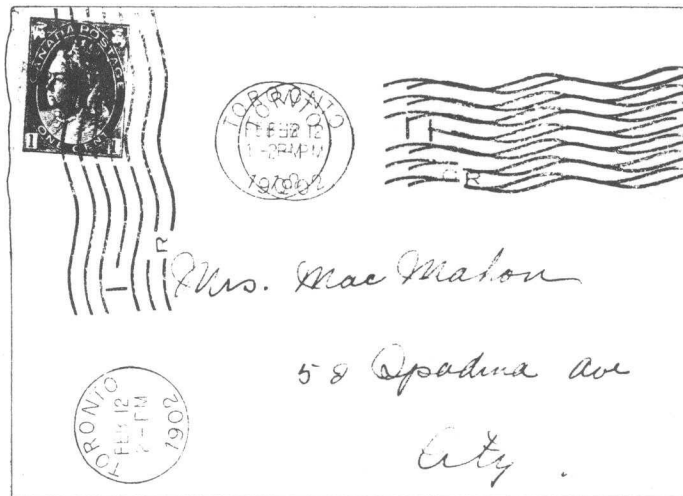 CANADA POSTAGE
ONE CENT
1 1
TORONTO
FEB 12
2-PM
1902
I
R
Mrs. Mac Mahon
58 Spadina ave
City.
TORONTO
FEB 12
2-PM
1902